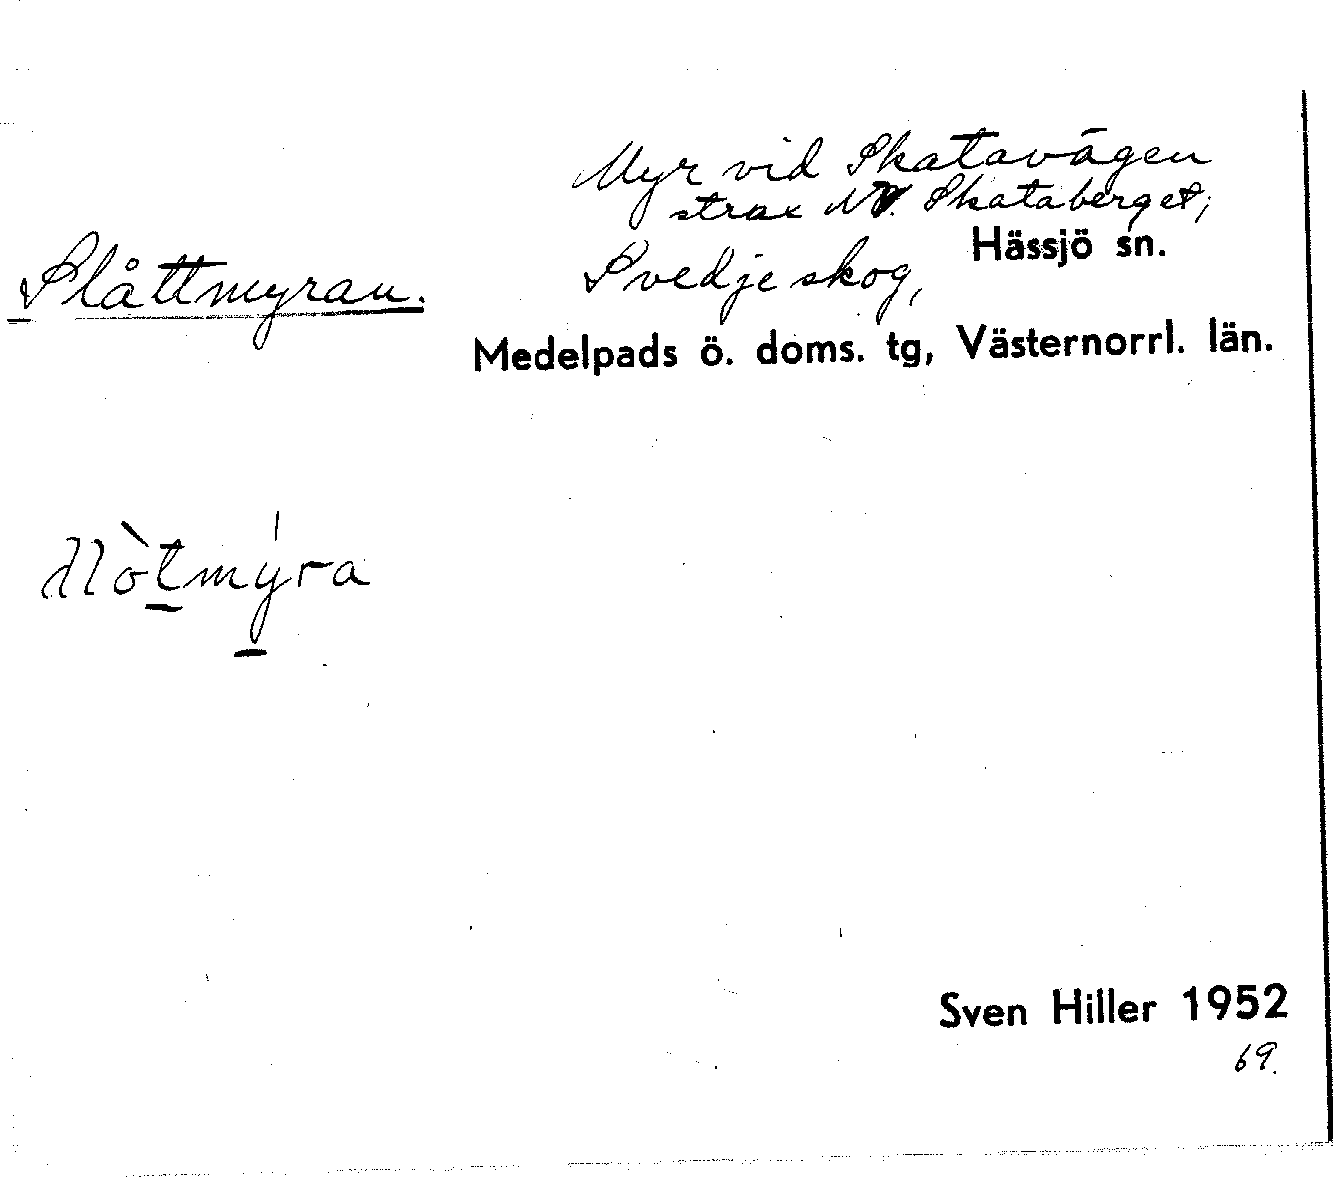 Slåttmyran.
Myr vid Skatavägen
strax NV. Skataberget,
Svedjeskog, Hässjö sn.
Medelpads ö. doms. tg, Västernorrl. län.
Sven Hiller 1952
69.